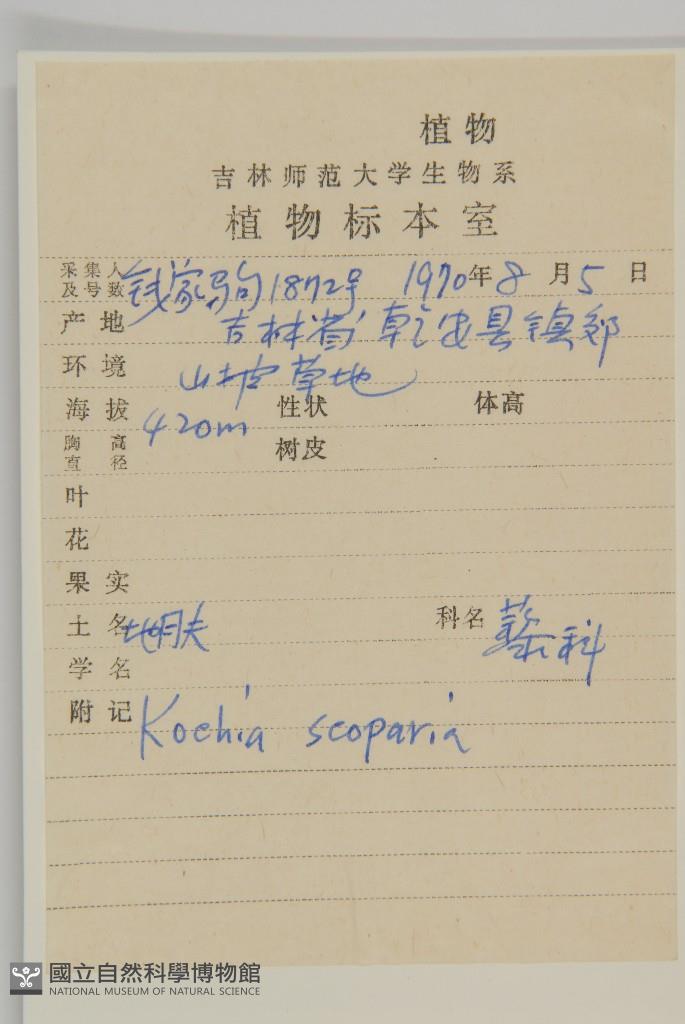 植物
吉林师范大学生物系
植物标本室
采集人及号数 钱家驹 1872号 1970年8月5日
产地 吉林省乾安县镇郊
环境 山坡草地
海拔 420m 性状 体高
胸高直径 树皮
叶
花
果实
土名 地肤 科名 藜科
学名
附记 Kochia scoparia
國立自然科學博物館
NATIONAL MUSEUM OF NATURAL SCIENCE